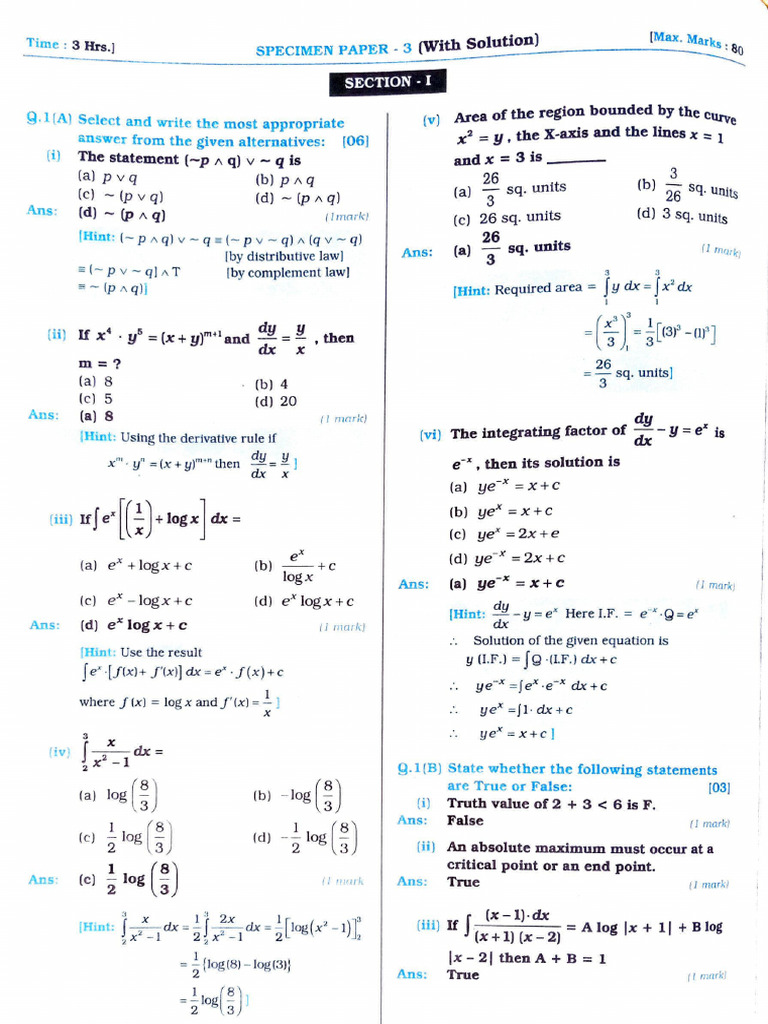 Time : 3 Hrs.]
SPECIMEN PAPER - 3 (With Solution)
[Max. Marks : 80
SECTION - I
Q.1(A) Select and write the most appropriate
answer from the given alternatives: [06]
(i) The statement (~p ∧ q) ∨ ~ q is
(a) p ∨ q (b) p ∧ q
(c) ~ (p ∨ q) (d) ~ (p ∧ q)
Ans: (d) ~ (p ∧ q) (1mark)
[Hint: (~ p ∧ q) ∨ ~ q ≡ (~ p ∨ ~ q) ∧ (q ∨ ~ q)
[by distributive law]
≡ (~ p ∨ ~ q] ∧ T [by complement law]
≡ ~ (p ∧ q)]
(ii) If x⁴ · y⁵ = (x + y)ᵐ⁺¹ and dy/dx = y/x , then
m = ?
(a) 8 (b) 4
(c) 5 (d) 20
Ans: (a) 8 (1 mark)
[Hint: Using the derivative rule if
xᵐ · yⁿ = (x + y)ᵐ⁺ⁿ then dy/dx = y/x ]
(iii) If ∫ eˣ [(1/x) + log x] dx =
(a) eˣ + log x + c (b) eˣ/log x + c
(c) eˣ – log x + c (d) eˣ log x + c
Ans: (d) eˣ log x + c (1 mark)
[Hint: Use the result
∫ eˣ · [f(x) + f'(x)] dx = eˣ · f(x) + c
where f (x) = log x and f'(x) = 1/x ]
(iv) ∫₂³ x/(x² – 1) dx =
(a) log (8/3) (b) –log (8/3)
(c) 1/2 log (8/3) (d) –1/2 log (8/3)
Ans: (c) 1/2 log (8/3) (1 mark
[Hint: ∫₂³ x/(x² – 1) dx = 1/2 ∫₂³ 2x/(x² – 1) dx = 1/2 [log(x² – 1)]₂³
= 1/2 {log(8) – log(3)}
= 1/2 log (8/3) ]
(v) Area of the region bounded by the curve
x² = y , the X-axis and the lines x = 1
and x = 3 is ________
(a) 26/3 sq. units (b) 3/26 sq. units
(c) 26 sq. units (d) 3 sq. units
Ans: (a) 26/3 sq. units (1 mark)
[Hint: Required area = ∫₁³ y dx = ∫₁³ x² dx
= (x³/3)₁³ = 1/3 [(3)³ – (1)³]
= 26/3 sq. units]
(vi) The integrating factor of dy/dx – y = eˣ is
e⁻ˣ , then its solution is
(a) ye⁻ˣ = x + c
(b) yeˣ = x + c
(c) yeˣ = 2x + e
(d) ye⁻ˣ = 2x + c
Ans: (a) ye⁻ˣ = x + c (1 mark)
[Hint: dy/dx – y = eˣ Here I.F. = e⁻ˣ · Q = eˣ
∴ Solution of the given equation is
y (I.F.) = ∫ Q · (I.F.) dx + c
∴ ye⁻ˣ = ∫ eˣ · e⁻ˣ dx + c
∴ yeˣ = ∫ 1 · dx + c
∴ yeˣ = x + c ]
Q.1(B) State whether the following statements
are True or False: [03]
(i) Truth value of 2 + 3 < 6 is F.
Ans: False (1 mark)
(ii) An absolute maximum must occur at a
critical point or an end point.
Ans: True (1 mark)
(iii) If ∫ (x – 1) · dx/(x + 1) (x – 2) = A log |x + 1| + B log
|x – 2| then A + B = 1
Ans: True (1 mark)